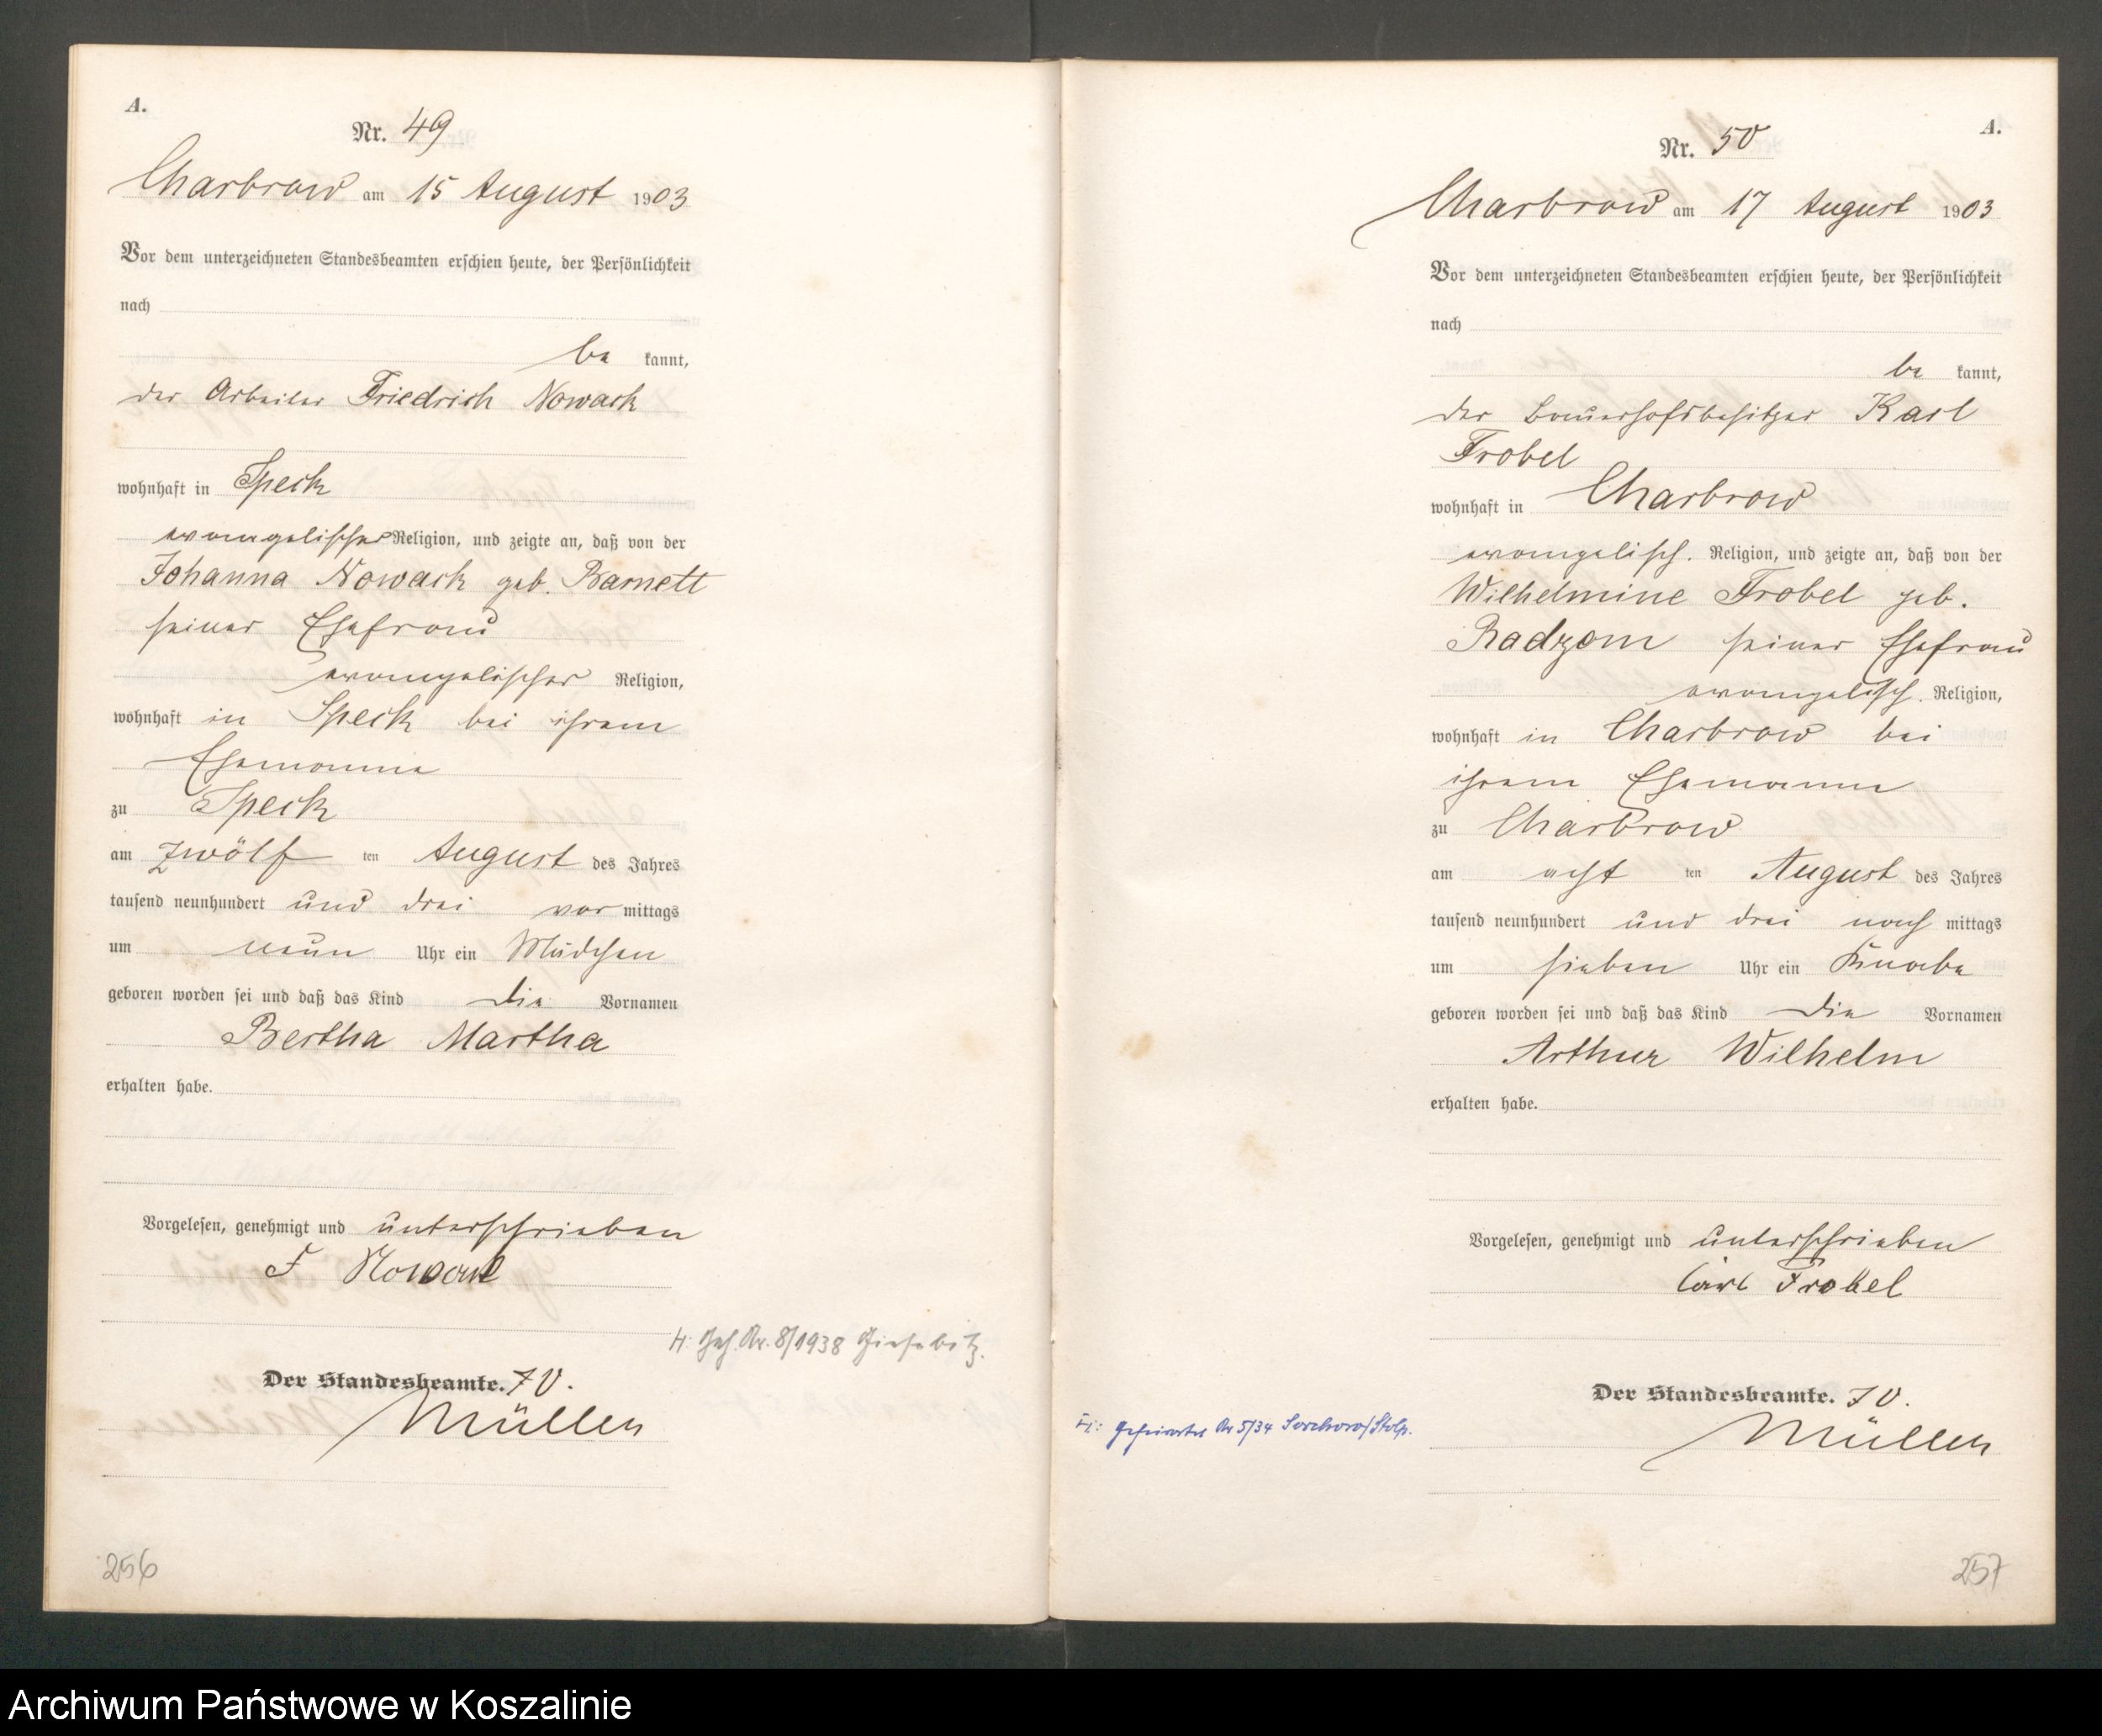 A.
Nr. 49
Charbrow am 15 August 1903
Vor dem unterzeichneten Standesbeamten erschien heute, der Persönlichkeit
nach
be kannt,
der Arbeiter Friedrich Nowack
wohnhaft in Speck
evangelischer Religion, und zeigte an, daß von der
Johanna Nowack geb. Barnett
seiner Ehefrau
evangelischer Religion,
wohnhaft in Speck bei ihrem
Ehemanne
zu Speck
am zwölf ten August des Jahres
tausend neunhundert und drei vor mittags
um neun Uhr ein Mädchen
geboren worden sei und daß das Kind die Vornamen
Bertha Martha
erhalten habe.
Vorgelesen, genehmigt und unterschrieben
F Nowack
H: Nr. 8/1938 Giesebitz.
Der Standesbeamte. J V.
Müller
256
A.
Nr. 50
Charbrow am 17 August 1903
Vor dem unterzeichneten Standesbeamten erschien heute, der Persönlichkeit
nach
be kannt,
der Bauerhofsbesitzer Karl
Frobel
wohnhaft in Charbrow
evangelisch. Religion, und zeigte an, daß von der
Wilhelmine Frobel geb.
Radzom seiner Ehefrau
evangelisch. Religion,
wohnhaft in Charbrow bei
ihrem Ehemanne
zu Charbrow
am acht ten August des Jahres
tausend neunhundert und drei nach mittags
um sieben Uhr ein Knabe
geboren worden sei und daß das Kind die Vornamen
Arthur Wilhelm
erhalten habe.
Vorgelesen, genehmigt und unterschrieben
Carl Frobel
Der Standesbeamte. J V.
Müller
geheiratet Nr 5/34 /Stolp.
257
Archiwum Państwowe w Koszalinie